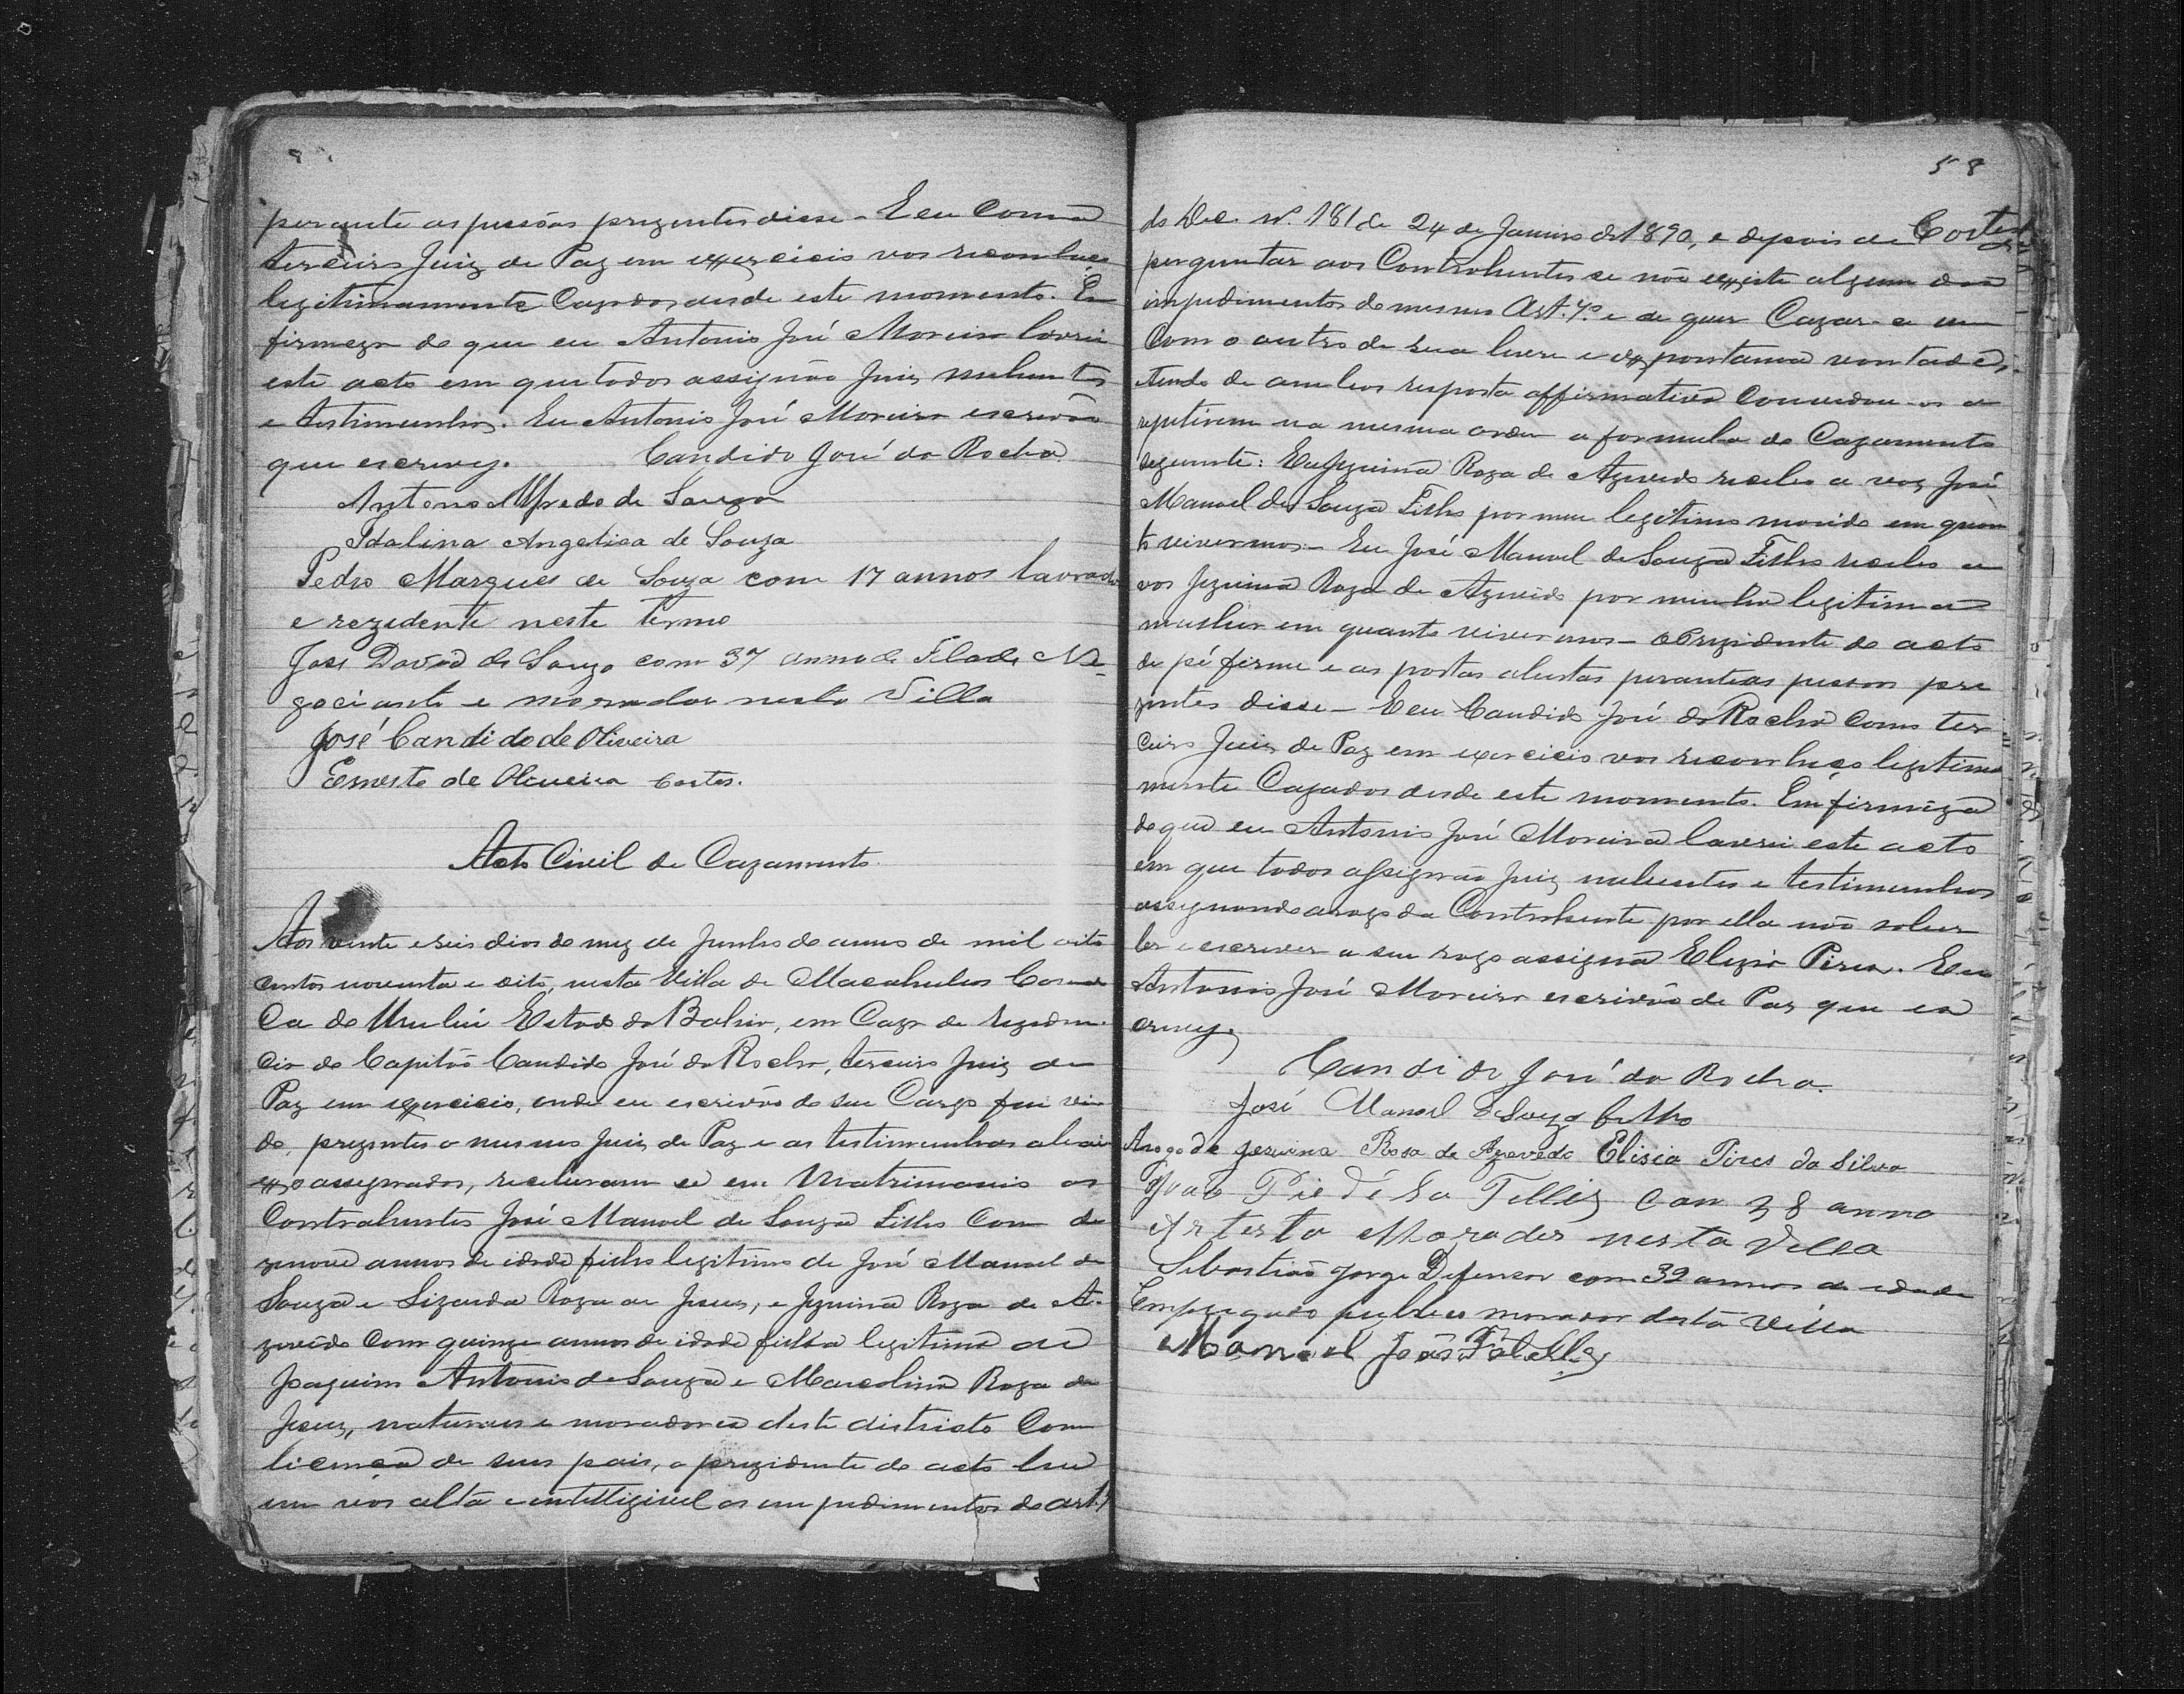 perante as pessôas prezentes disse - E eu como
terceiro Juiz de Paz em exxercicio vos reconheço
legitimamente Cazados desde este momento. Em
firmeza do que eu Antonio José Moreira lavrei
este acto em que todos assignão Juiz nubentes
e testimunhas. Eu Antonio José Moreira escrivão
que escrevy. Candido José da Rocha
Antonio Alfredo de Souza
Idalina Angelica de Souza
Pedro Marques de Souza com 17 annos lavrador
e rezidente neste termo
José David de Souza com 37 annos de Idade Ne-
gociante e morador nesta Villa
José Candido de Oliveira
Ernesto de Oliveira Cortes.
Acto Civil de Cazamento.
Aos vinte e seis dias do mez de Junho do anno de mil oito
centos noventa e oito, nesta Villa de Macahubas Comar
Ca de Urubú Estado da Bahia, em Caza de rezidên-
cia do Capitão Candido José da Rocha, terceiro Juiz de
Paz em exxercicio, onde eu escrivão do seu Cargo fui vin
do, prezentes o mesmo Juiz de Paz e as testimunhas abai
xxo assignados, receberam se em Matrimonio os
Contrahentes José Manoel de Souza Filho Com de
zenove annos de idade filho legitimo de José Manoel de
Souza e Lizarda Roza de Jesus, e Jezuina Roza de A-
zevêdo Com quinze annos de idade filha legitima de
Joaquim Antonio de Souza e Marcolina Roza de
Jesus, naturaes e moradores deste districto Com
licença de seus pais, o prezidente do acto leu
em vós alta e intelligivel os empedimentos do art. 7
58
do Dec. Nº. 181 de 24 de Janeiro de 1890, e depois de Cortes
perguntar aos Contrahentes se não exxiste algum dos
impedimentos do mesmo Art. 7º e de quer Cazar-se um
Com o outro de sua livre e expontanea vontade,
tendo de ambos resposta affirmativa Convidou-os a
repetirem na mesma ordem a formula do Cazamento
seguinte: Eu Jezuina Roza de Azevedo recebo a vos José
Manoel de Souza Filho por meu legitimo marido em quan
to vivermos - Eu José Manoel de Souza Filho recebo a
vos Jezuina Roza de Azevedo por minha legitima
mulher em quanto vivermos - O Prezidente do acto
de pé firme e as portas abertas perante as pessoas pre
zentes disse - E eu Candido José da Rocha Como ter
ceiro Juiz de Paz em exercicio vos reconheço legitima
mente Cazados desde este momento. Em firmêza
do que eu Antonio José Moreira lavrei este acto
em que todos assignão Juiz nubentes e testimunhas
assignando a rogo da Contrahente por ella não saber
ler e escrever a seu rogo assigna Elizio Pires. Eu
Antonio José Moreira escrivão de Paz que es
crevy.
Candido José da Rocha
José Manoel de Souza filho
Arogo de Jesuina Rosa de Azevedo Elisio Pires da Silva
João Pie de Sa Tellis Com 38 anno
Artesta Morador nesta Villa
Sebastião Jorge Defensor com 32 annos de idade
Empregado publico morador desta Villa
Manoel José